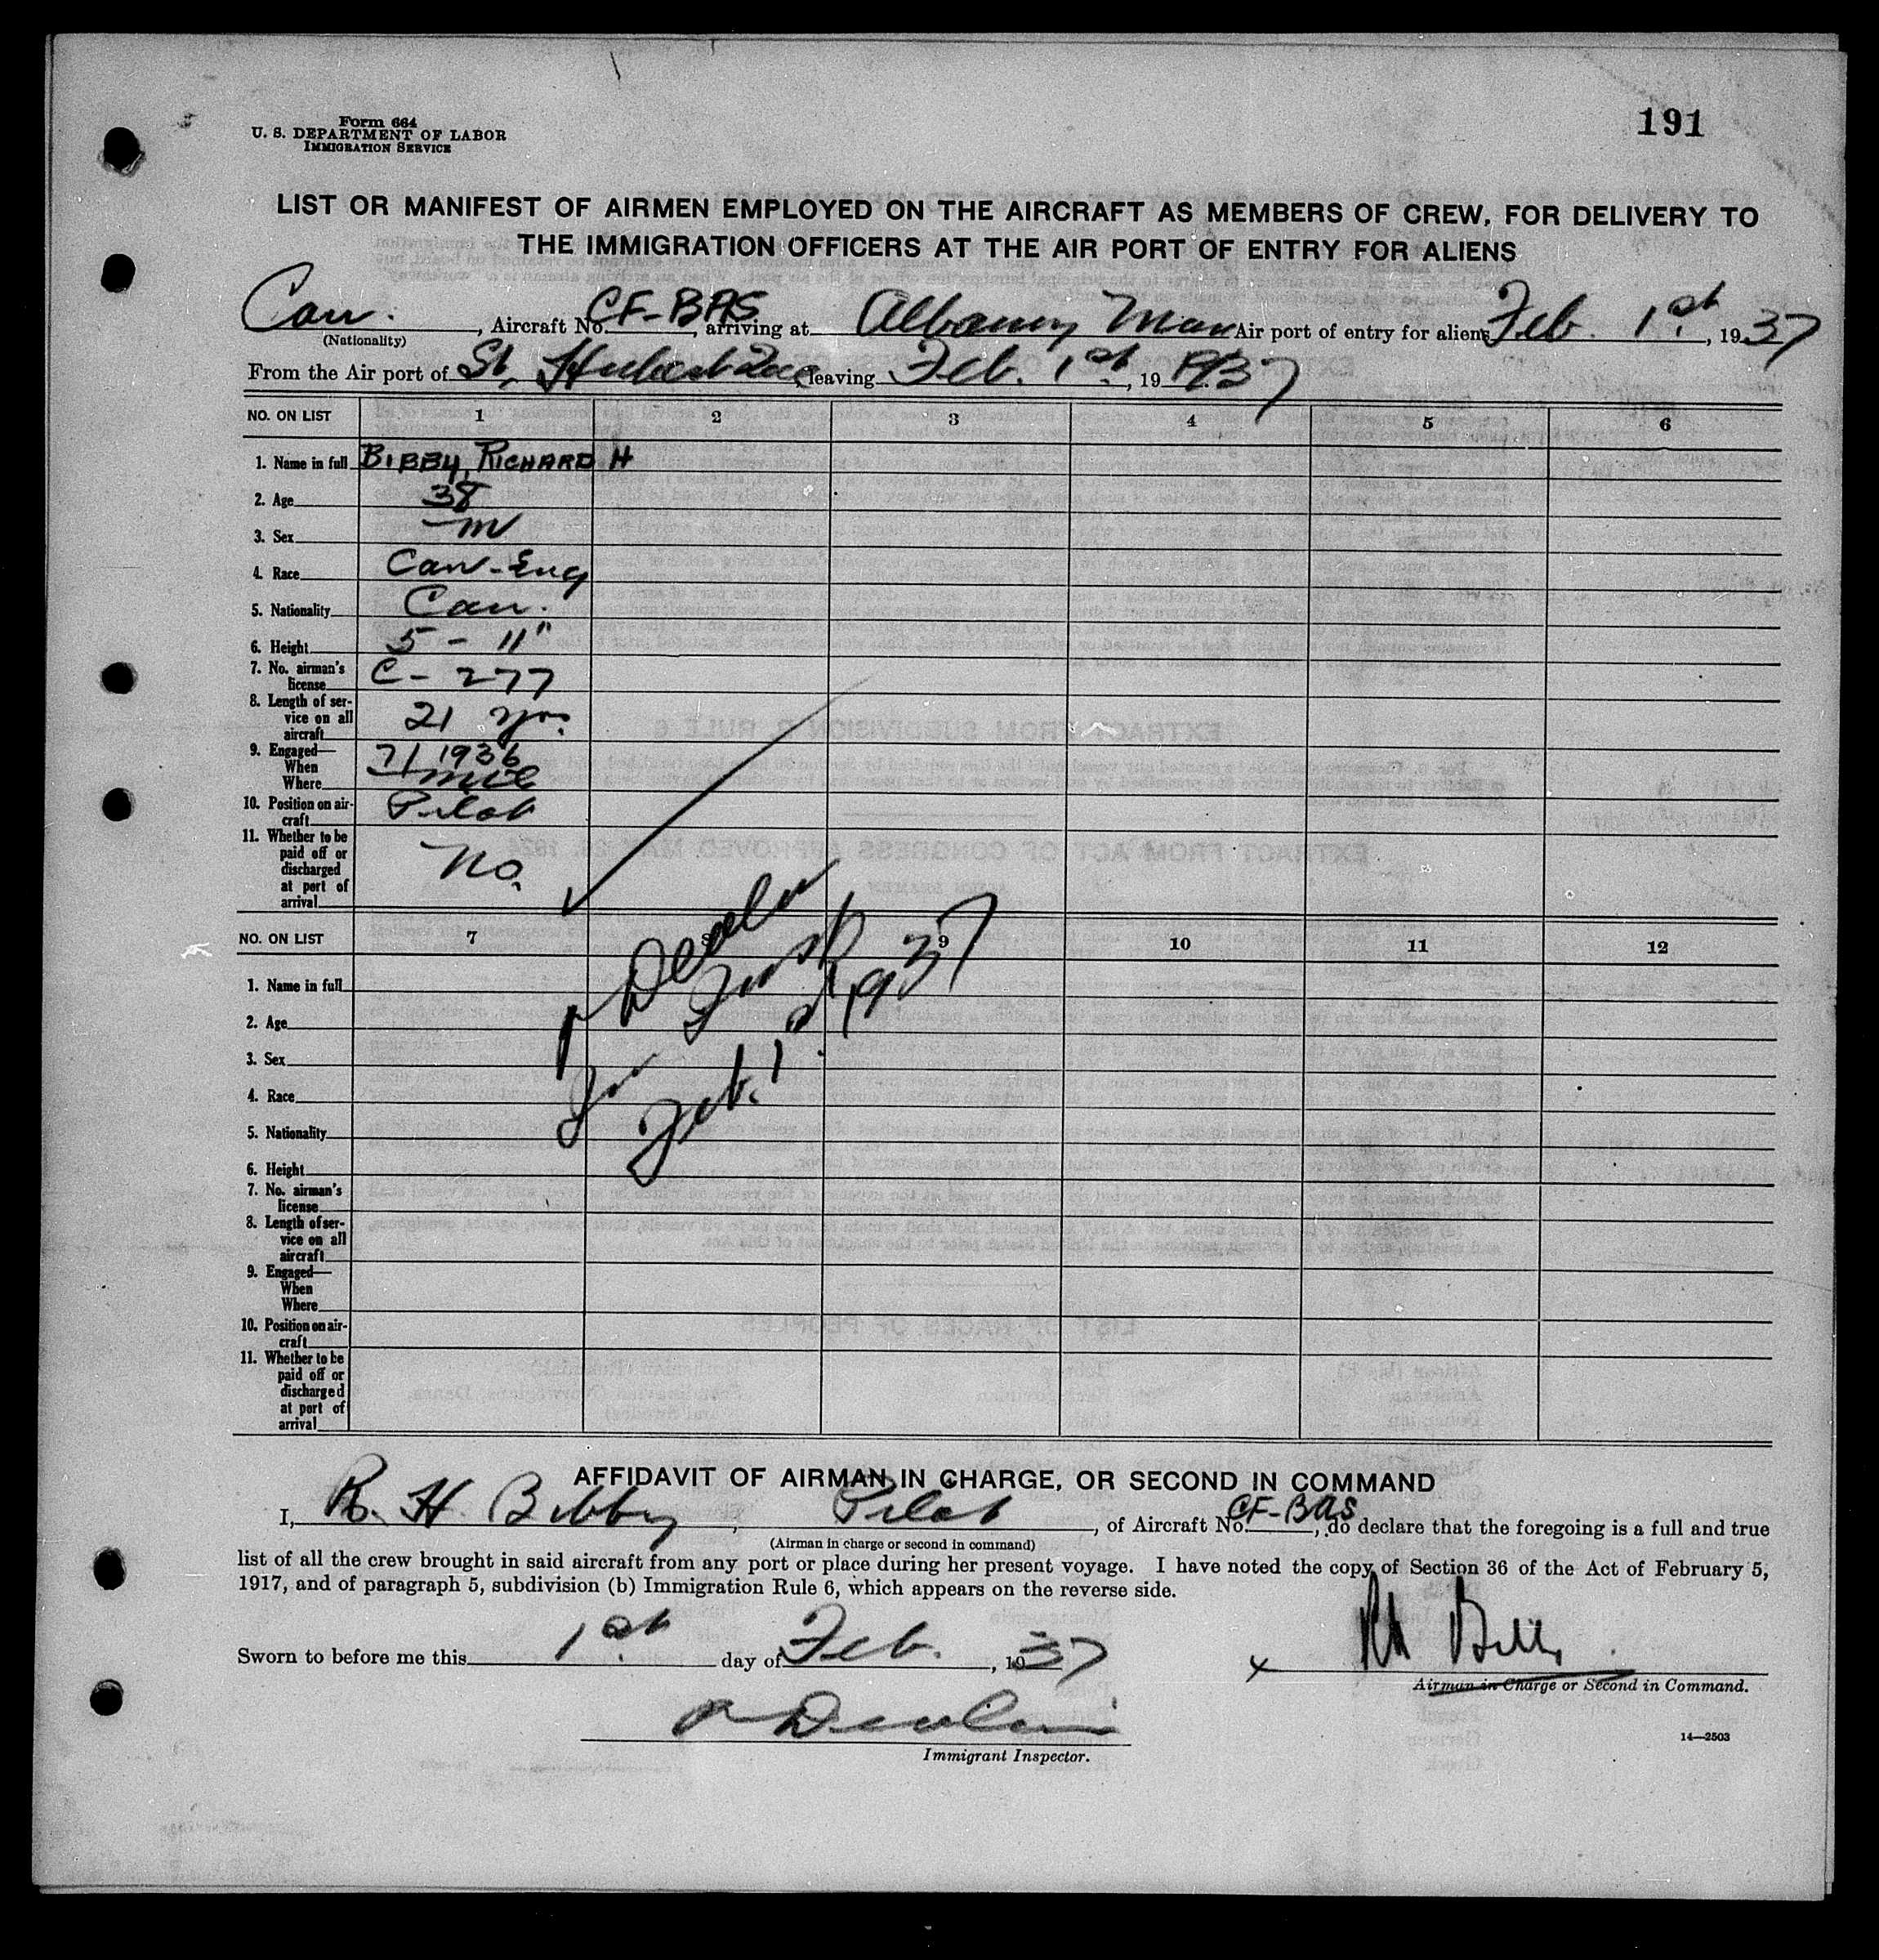 191
Form 664
U. S. DEPARTMENT OF LABOR
IMMIGRATION SERVICE
LIST OR MANIFEST OF AIRMEN EMPLOYED ON THE AIRCRAFT AS MEMBERS OF CREW, FOR DELIVERY TO
THE IMMIGRATION OFFICERS AT THE AIR PORT OF ENTRY FOR ALIENS
Can. , Aircraft No. CF-BAS, arriving at Albany Air port of entry for aliens Feb. 1st, 1937
(Nationality)
From the Air port of St. Hubert Que leaving Feb. 1st, 19 1937
NO. ON LIST 1 2 3 4 5 6
1. Name in full BIBBY, RICHARD H
2. Age 38
3. Sex m
4. Race Can-Eng
5. Nationality Can.
6. Height 5 - 11"
7. No. airman's
license C- 277
8. Length of ser-
vice on all
aircraft 21 yrs.
9. Engaged—
When 7/1936
Where
10. Position on air-
craft Pilot
11. Whether to be
paid off or
discharged
at port of
arrival No.
NO. ON LIST 7 8 9 10 11 12
1. Name in full
2. Age
3. Sex
4. Race
5. Nationality
6. Height
7. No. airman's
license
8. Length of ser-
vice on all
aircraft
9. Engaged—
When
Where
10. Position on air-
craft
11. Whether to be
paid off or
discharged
at port of
arrival
Devlin
Imm Insp
Feb. 1st 1937
AFFIDAVIT OF AIRMAN IN CHARGE, OR SECOND IN COMMAND
I, R. H. Bibby, Pilot, of Aircraft No. CF-BAS, do declare that the foregoing is a full and true
(Airman in charge or second in command)
list of all the crew brought in said aircraft from any port or place during her present voyage. I have noted the copy of Section 36 of the Act of February 5,
1917, and of paragraph 5, subdivision (b) Immigration Rule 6, which appears on the reverse side.
Sworn to before me this 1st day of Feb., 1937
x RH Bibby
Airman in Charge or Second in Command.
Devlin
Immigrant Inspector.
14—2503